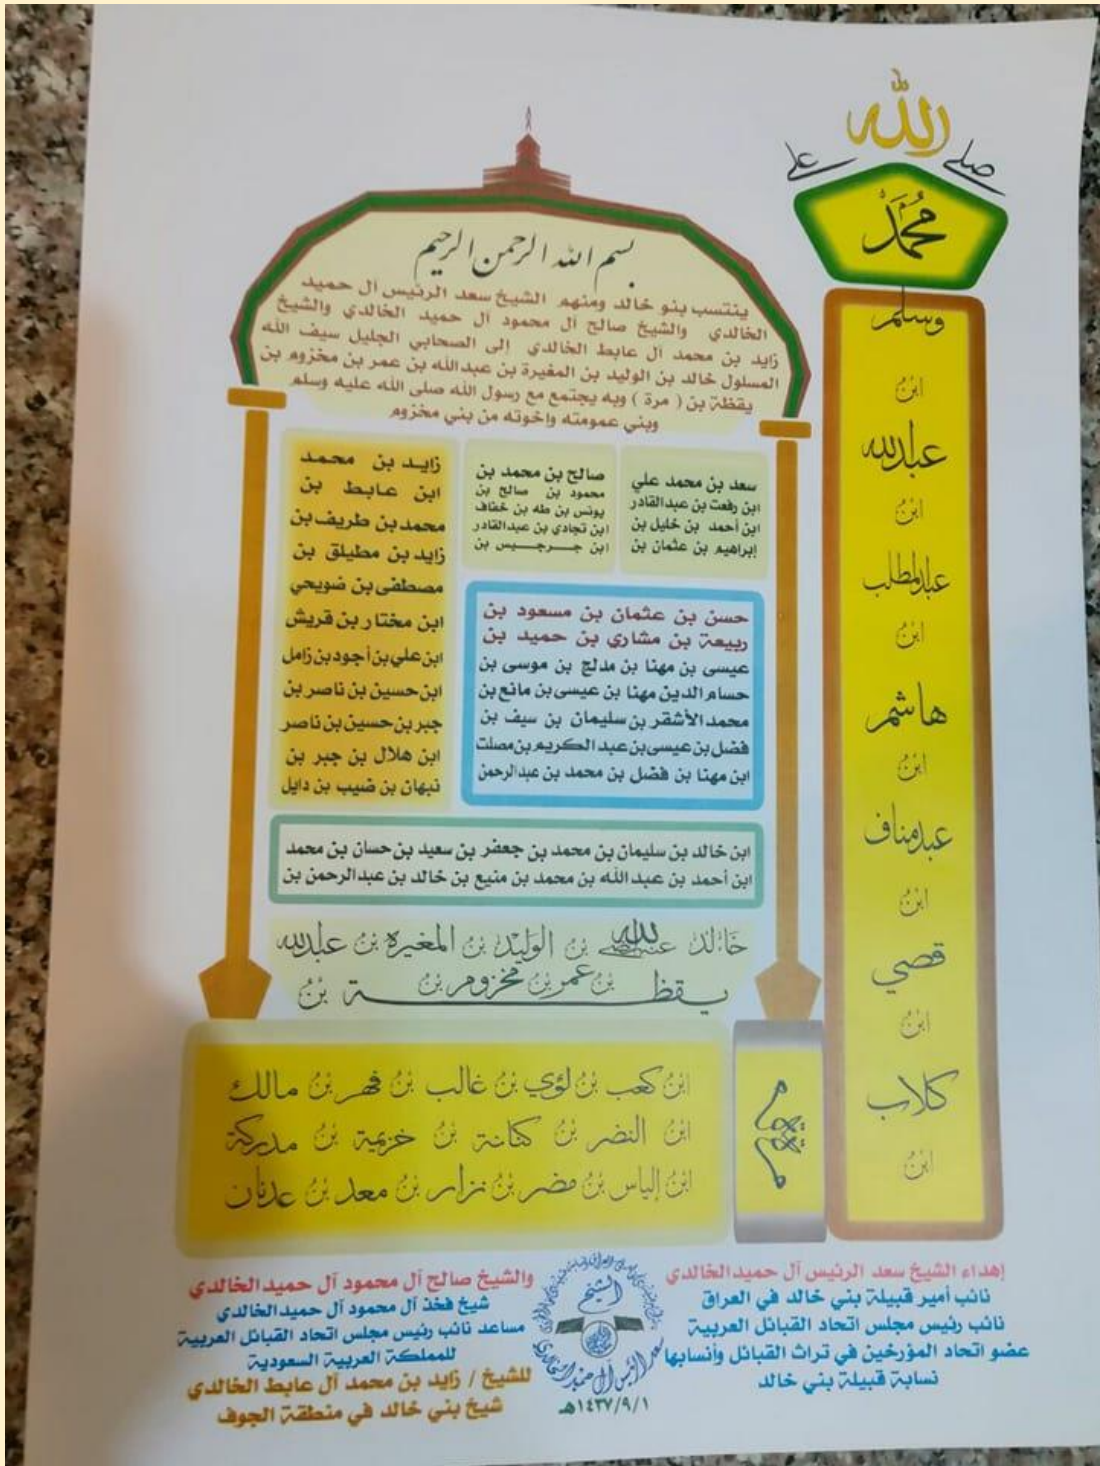 الله
صلى
علي
محمد
وسلم
ابن
عبدالله
ابن
عبدالمطلب
ابن
هاشم
ابن
عبدمناف
ابن
قصي
ابن
كلاب
ابن
بسم الله الرحمن الرحيم
ينتسب بنو خالد ومنهم الشيخ سعد الرئيس آل حميد
الخالدي والشيخ صالح آل محمود آل حميد الخالدي والشيخ
زايد بن محمد آل عابط الخالدي إلى الصحابي الجليل سيف الله
المسلول خالد بن الوليد بن المغيرة بن عبدالله بن عمر بن مخزوم بن
يقظة بن ( مرة ) وبه يجتمع مع رسول الله صلى الله عليه وسلم
وبني عمومته وإخوته من بني مخزوم
سعد بن محمد علي
ابن رفعت بن عبدالقادر
ابن أحمد بن خليل بن
إبراهيم بن عثمان بن
صالح بن محمد بن
محمود بن صالح بن
يونس بن طه بن خفاف
ابن نجادي بن عبدالقادر
ابن جرجيس بن
زايد بن محمد
ابن عابط بن
محمد بن طريف بن
زايد بن مطيلق بن
مصطفى بن ضويحي
ابن مختار بن قريش
ابن علي بن أجود بن زامل
ابن حسين بن ناصر بن
جبر بن حسين بن ناصر
ابن هلال بن جبر بن
نبهان بن ضيب بن دايل
حسن بن عثمان بن مسعود بن
ربيعة بن مشاري بن حميد بن
عيسى بن مهنا بن مدلج بن موسى بن
حسام الدين مهنا بن عيسى بن مانع بن
محمد الأشقر بن سليمان بن سيف بن
فضل بن عيسى بن عبد الكريم بن مصلت
ابن مهنا بن فضل بن محمد بن عبدالرحمن
ابن خالد بن سليمان بن محمد بن جعفر بن سعيد بن حسان بن محمد
ابن أحمد بن عبد الله بن محمد بن منيع بن خالد بن عبدالرحمن بن
خالد رضي الله عنه بن الوليد بن المغيرة بن عبدالله
بن عمر بن مخزوم بن
يقظة بن
مرة
ابن كعب بن لؤي بن غالب بن فهر بن مالك
ابن النضر بن كنانة بن خزيمة بن مدركة
ابن إلياس بن مضر بن نزار بن معد بن عدنان
إهداء الشيخ سعد الرئيس آل حميد الخالدي
نائب أمير قبيلة بني خالد في العراق
نائب رئيس مجلس اتحاد القبائل العربية
عضو اتحاد المؤرخين في تراث القبائل وأنسابها
نسابة قبيلة بني خالد
الشيخ
سعد الرئيس آل حميد الخالدي
١٤٣٧/٩/١هـ
والشيخ صالح آل محمود آل حميد الخالدي
شيخ فخذ آل محمود آل حميد الخالدي
مساعد نائب رئيس مجلس اتحاد القبائل العربية
للمملكة العربية السعودية
للشيخ / زايد بن محمد آل عابط الخالدي
شيخ بني خالد في منطقة الجوف